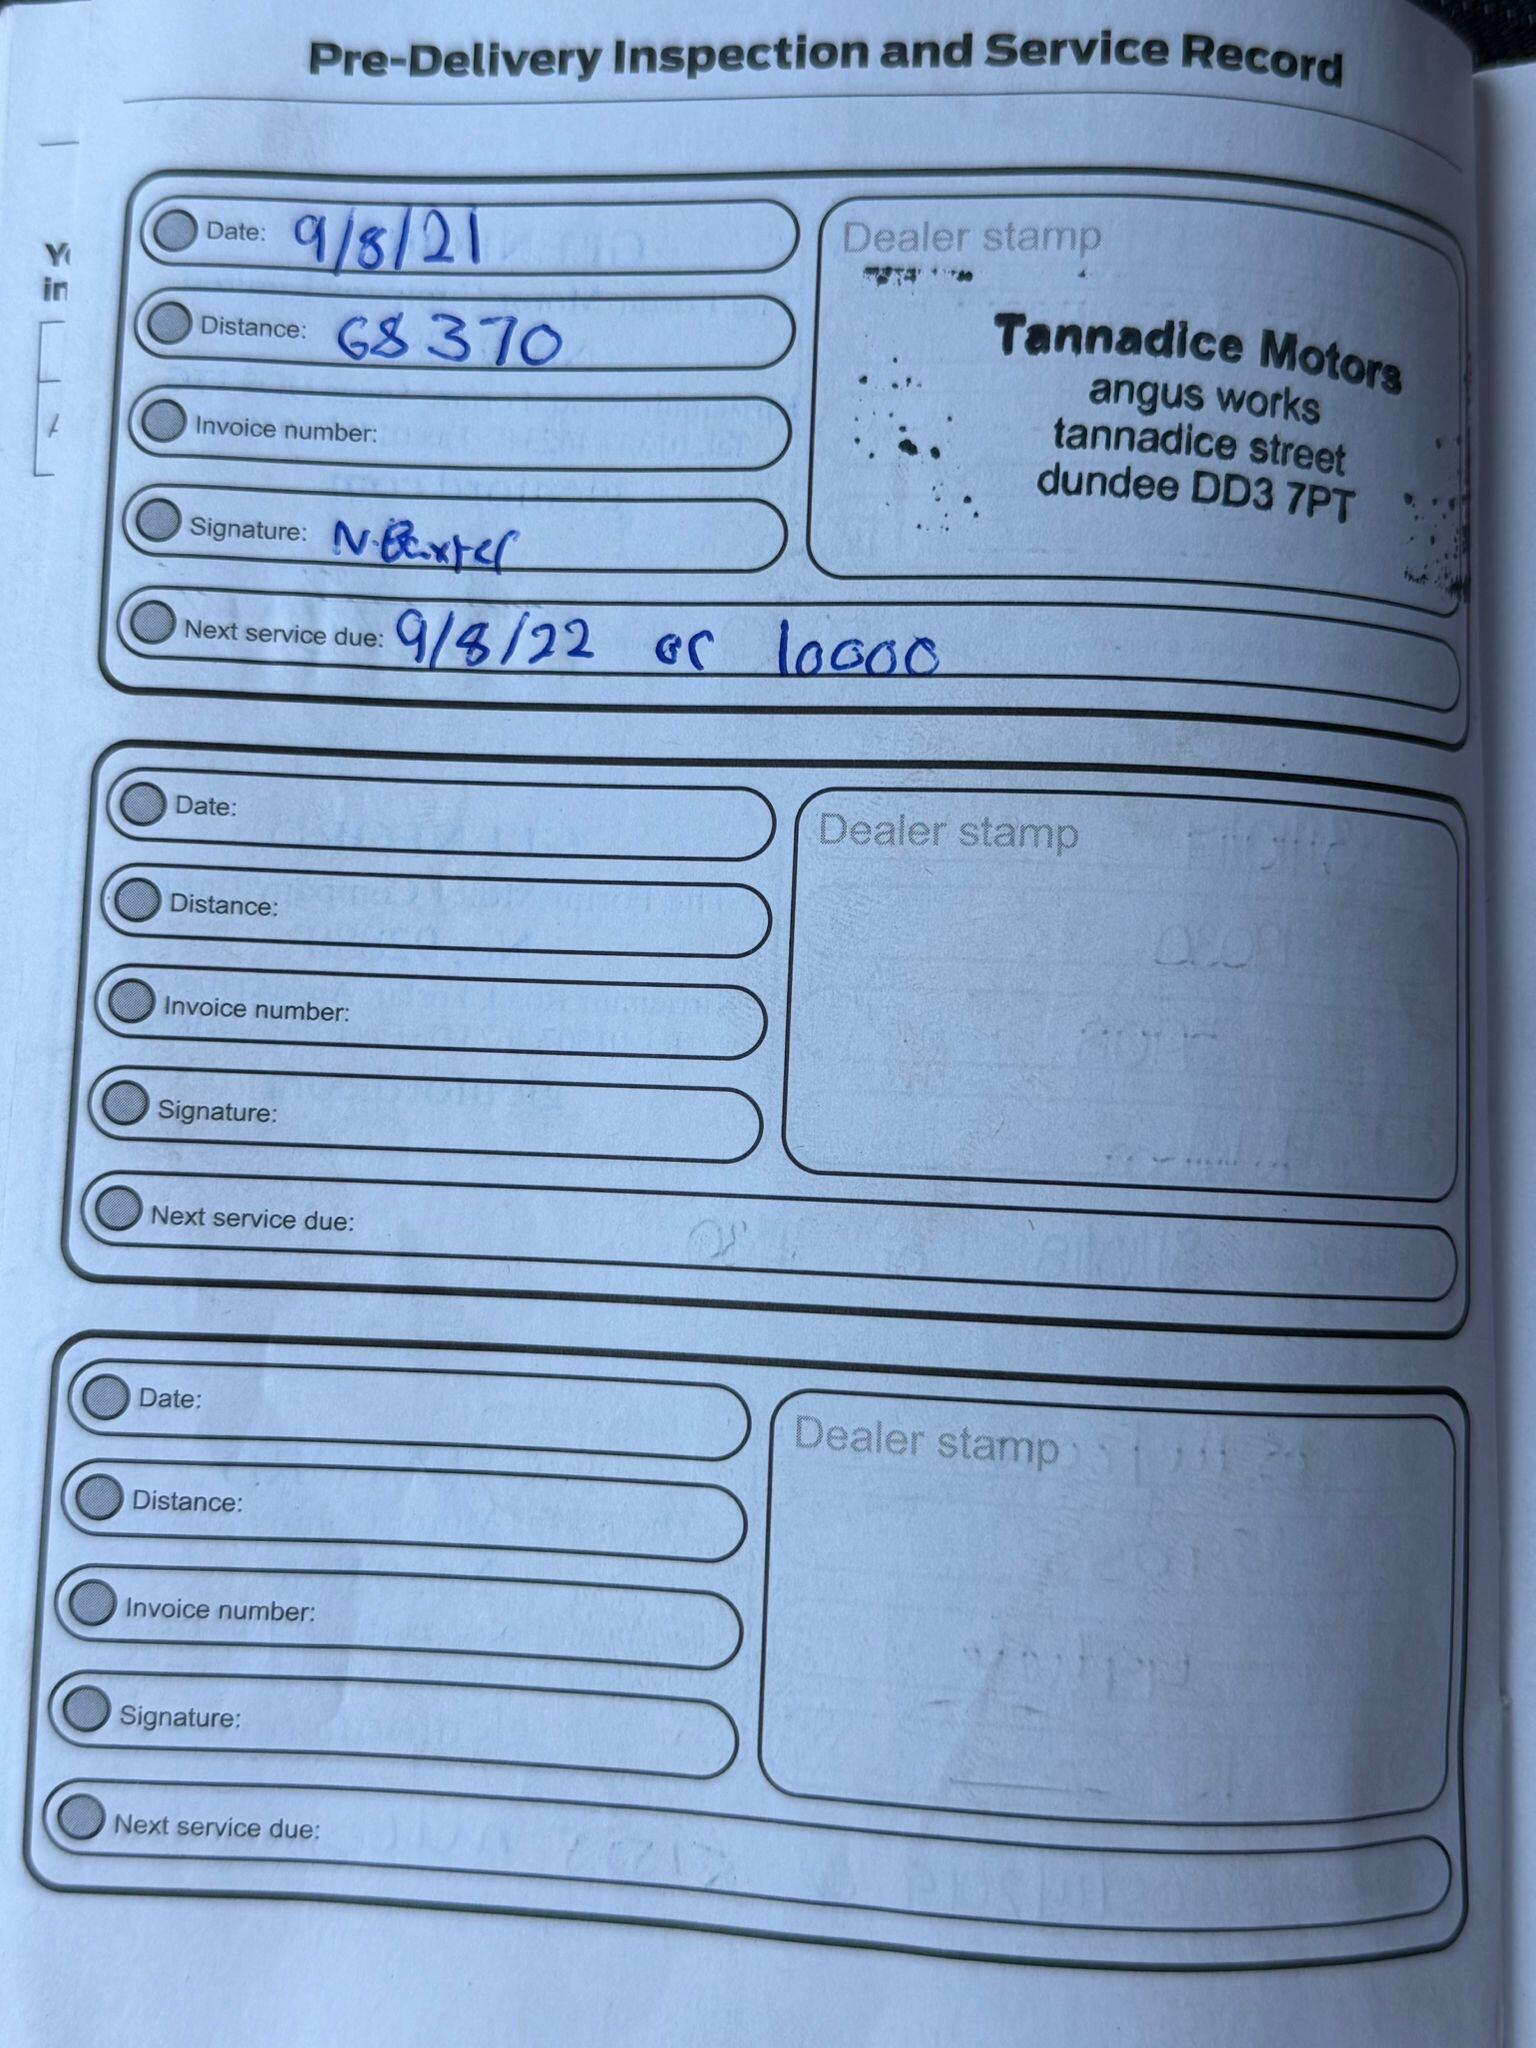 Pre-Delivery Inspection and Service Record
Date: 9/8/21
Distance: 68370
Invoice number:
Signature: N.Baxter
Next service due: 9/8/22 or 10000
Dealer stamp
Tannadice Motors
angus works
tannadice street
dundee DD3 7PT
Date:
Distance:
Invoice number:
Signature:
Next service due:
Dealer stamp
Date:
Distance:
Invoice number:
Signature:
Next service due:
Dealer stamp